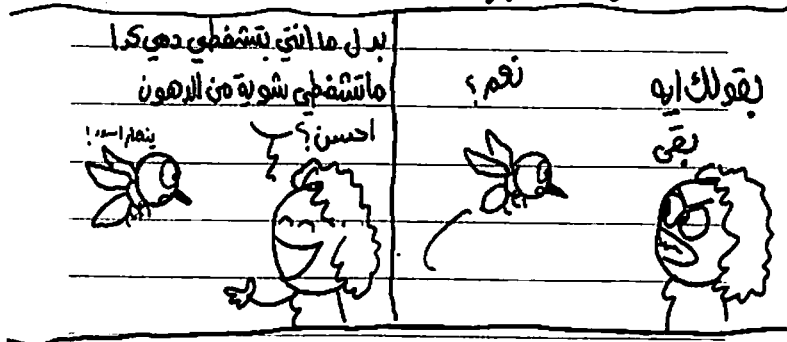 بقولك ايه
بقى
نعم؟
بدل ما انتي بتشفطي دمي كدا
ماتشفطي شوية من الدهون
احسن؟